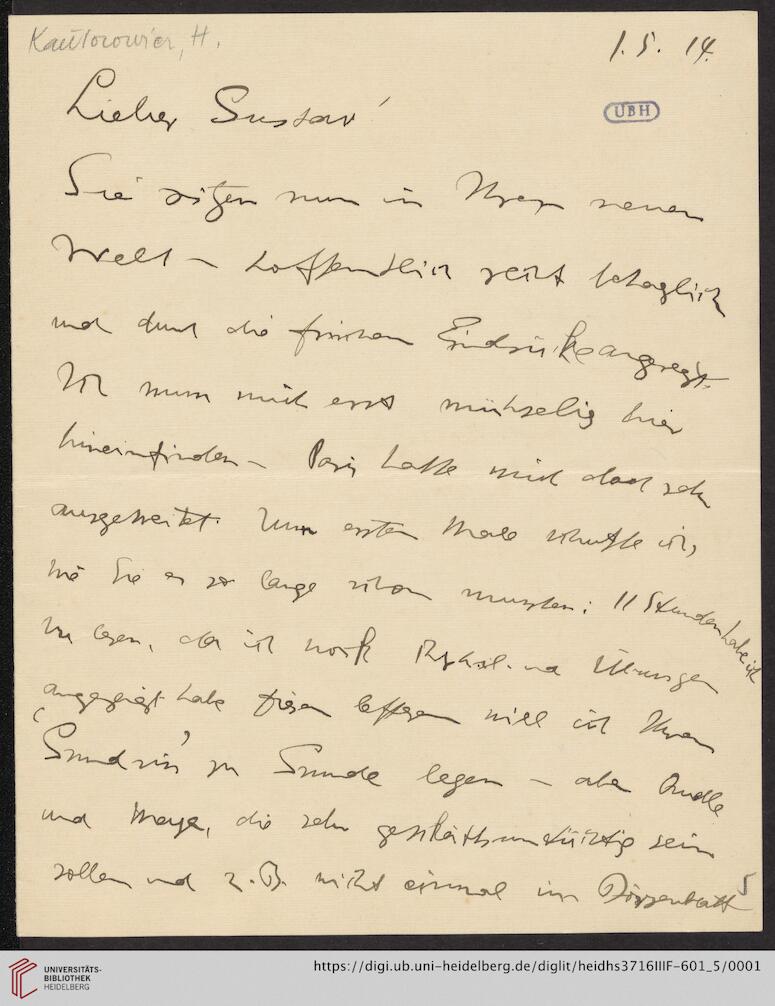 Kantorowicz, H.
1. 5. 14.
Lieber Gustav
UBH
Sie sitzen nun in Ihrer neuen
Welt – hoffentlich recht behaglich
und durch die frischen Eindrücke angeregt.
Ich muss mich erst mühselig hier
hineinfinden – Paris hatte mich doch sehr
ausgeweitet. Zum ersten Male schufte ich,
wie Sie es so lange schon mussten: 11 Stunden habe ich
zu lesen, da ich noch und Übungen
angezeigt habe. Diesen letzteren will ich Ihren
„Grundriss" zu Grunde legen – aber Quelle
und Meyer, die sehr geschäftsuntüchtig sein
sollen und z. B. nicht einmal im Börsenblatt
5
UNIVERSITÄTS-
BIBLIOTHEK
HEIDELBERG
https://digi.ub.uni-heidelberg.de/diglit/heidhs3716IIIF-601_5/0001